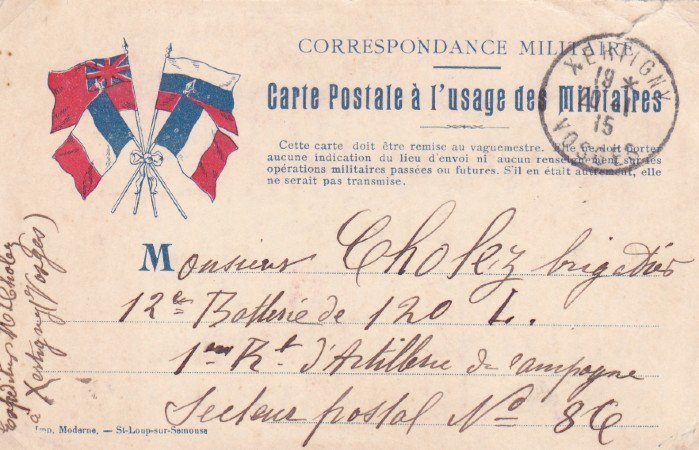 CORRESPONDANCE MILITAIRE
Carte Postale à l'usage des Militaires
Cette carte doit être remise au vaguemestre. Elle ne doit porter
aucune indication du lieu d'envoi ni aucun renseignement sur les
opérations militaires passées ou futures. S'il en était autrement, elle
ne serait pas transmise.
XERTIGNY
19 *
15
VOSGES
Monsieur Cholez brigadier
12e Batterie de 120 L.
1er Rt d'Artillerie de campagne
Secteur postal No 86
Expéditeur M Cholez
à Xertigny (Vosges)
Imp. Moderne, — St-Loup-sur-Semouse